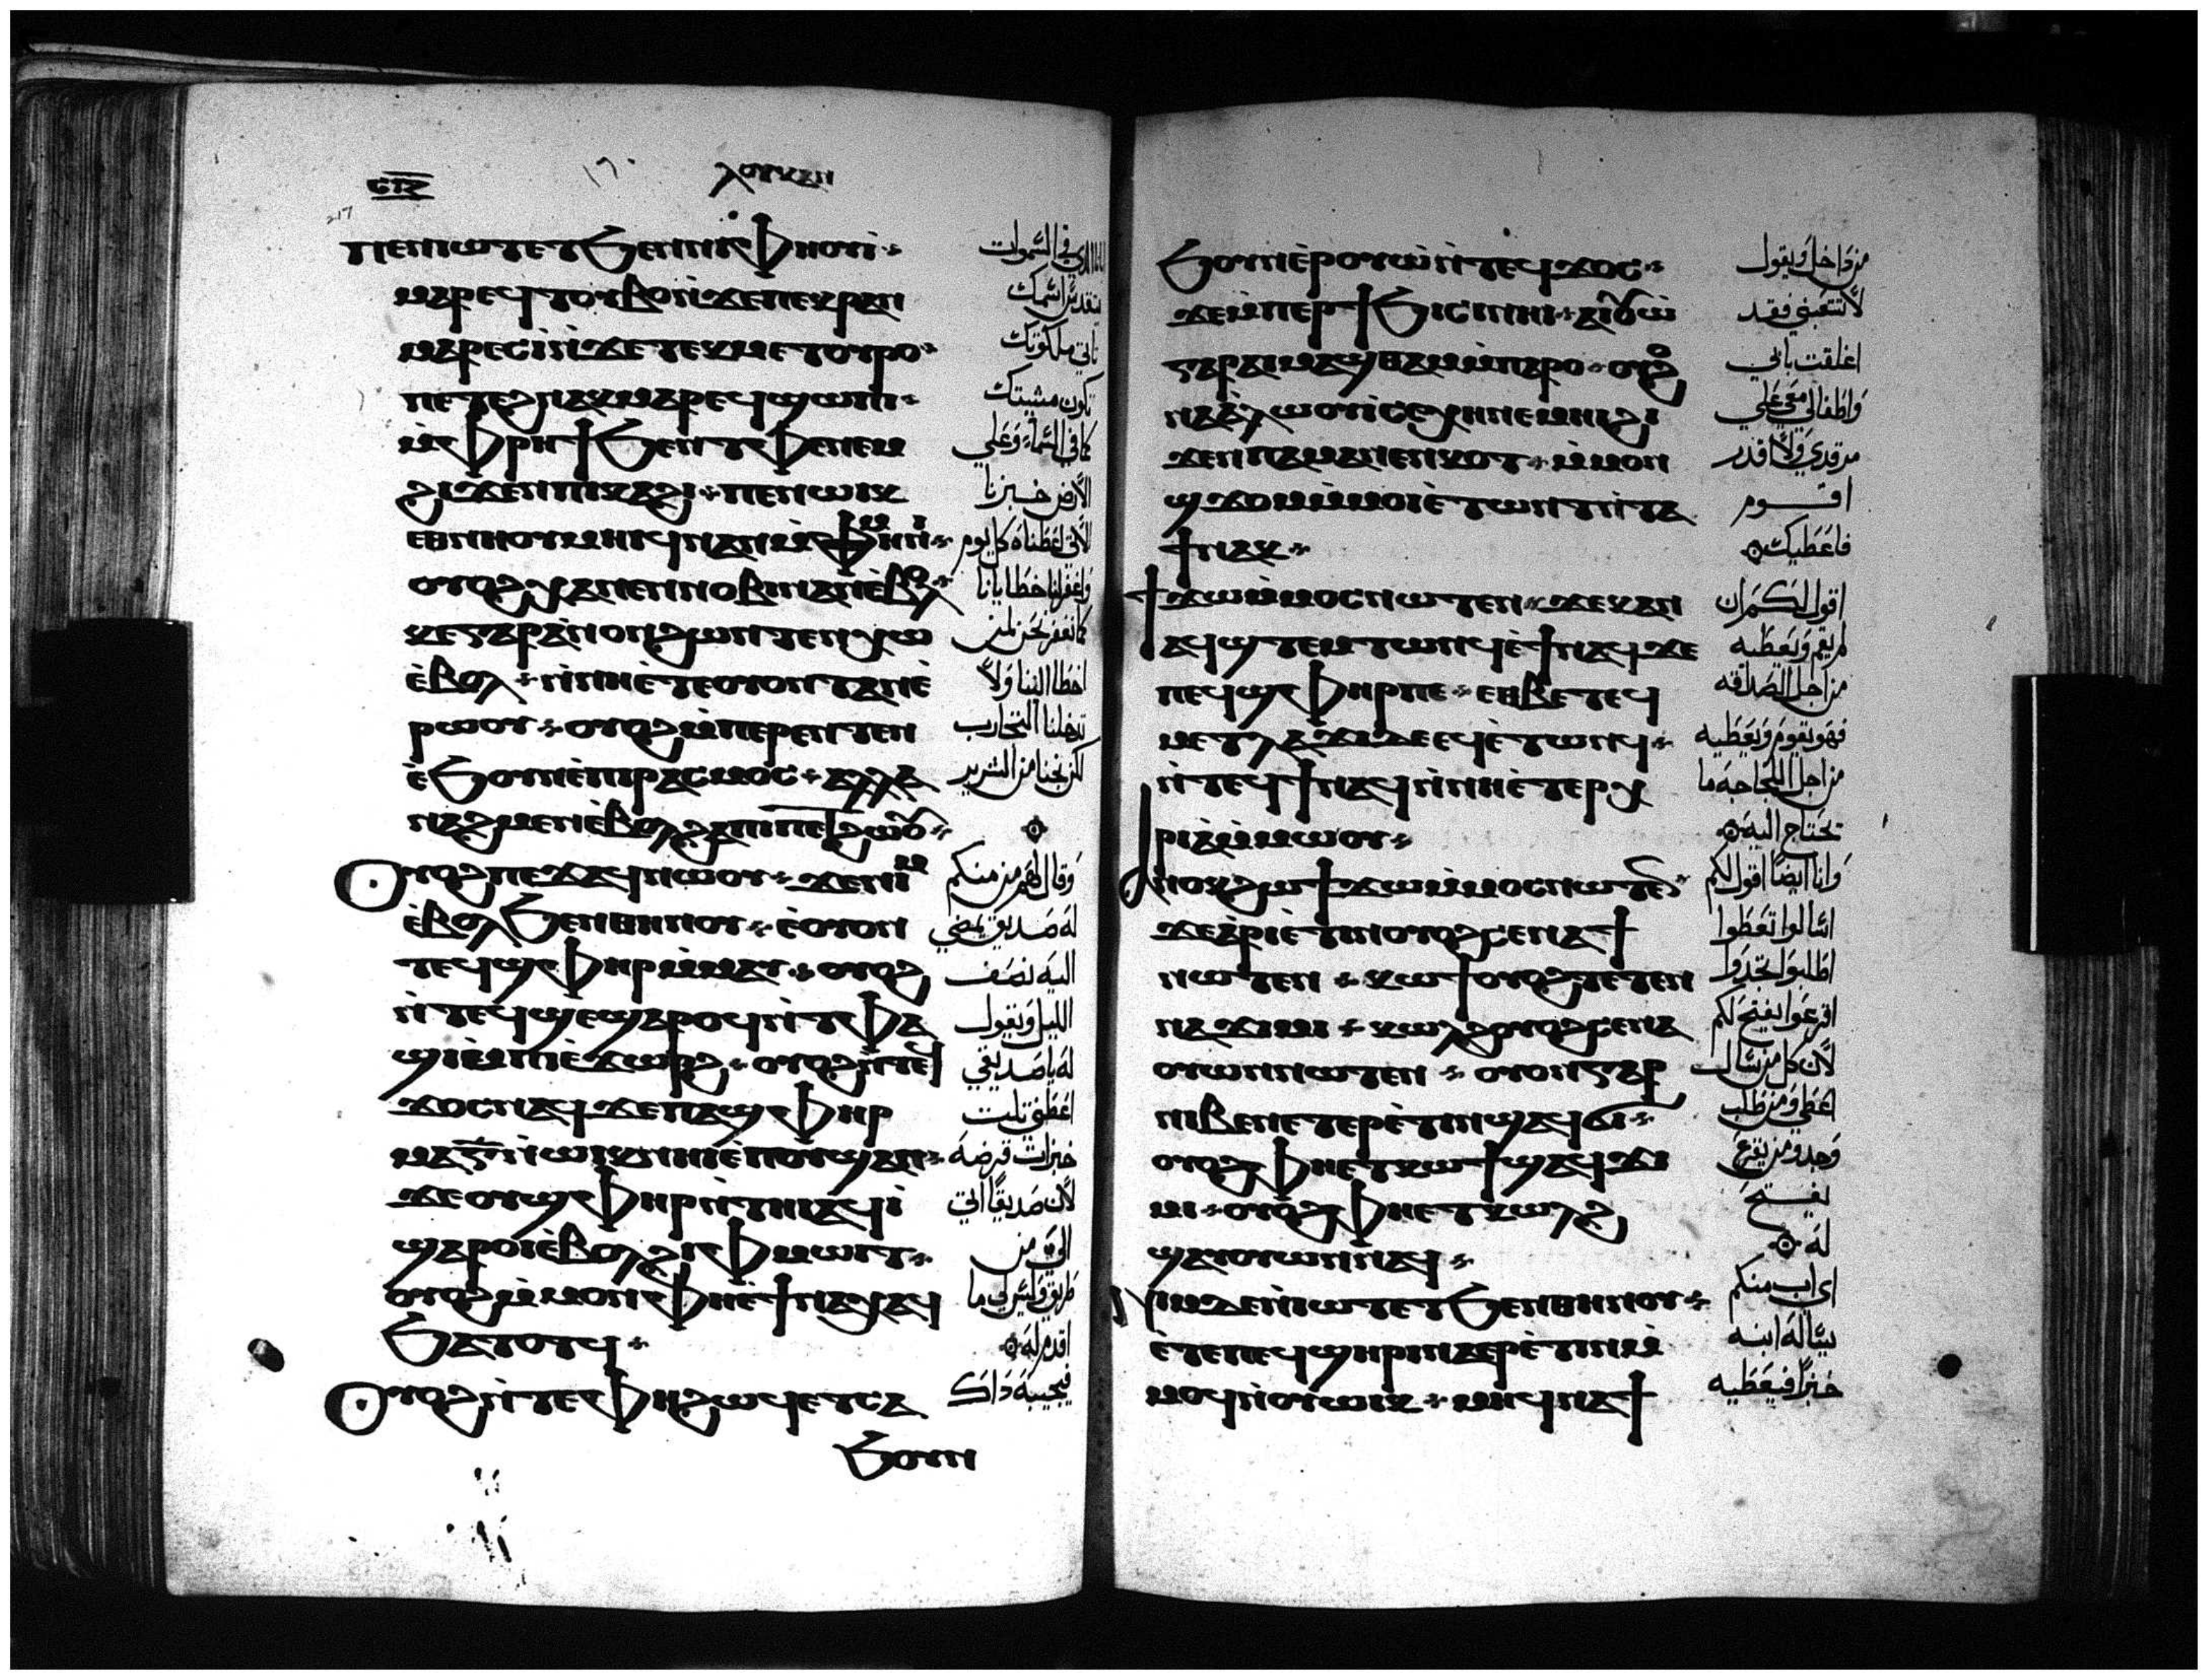 ⲗⲟⲩⲕⲁⲛ
ⲥⲓⲍ
217
ⲡⲉⲛⲓⲱⲧ ⲉⲧϧⲉⲛ ⲛⲓⲫⲏⲟⲩⲓ
ⲙⲁⲣⲉϥⲧⲟⲩⲃⲟ ⲛ̀ϫⲉ ⲡⲉⲕⲣⲁⲛ
ⲙⲁⲣⲉⲥⲓ̀ ⲛ̀ϫⲉ ⲧⲉⲕⲙⲉⲧⲟⲩⲣⲟ
ⲡⲉⲧⲉϩⲛⲁⲕ ⲙⲁⲣⲉϥϣⲱⲡⲓ
ⲙ̀ⲫⲣⲏϯ ϧⲉⲛ ⲧⲫⲉ ⲛⲉⲙ
ϩⲓϫⲉⲛ ⲡⲓⲕⲁϩⲓ ⲡⲉⲛⲱⲓⲕ
ⲉⲑⲛⲏⲟⲩ ⲙⲏⲓϥ ⲛⲁⲛ ⲙ̀ⲙⲏⲛⲓ
ⲟⲩⲟϩ ⲭⲁ ⲛⲉⲛⲛⲟⲃⲓ ⲛⲁⲛ ⲉ̀ⲃⲟⲗ
ⲕⲉ ⲅⲁⲣ ⲁ̀ⲛⲟⲛ ϩⲱⲛ ⲧⲉⲛⲭⲱ
ⲉ̀ⲃⲟⲗ ⲛ̀ⲛⲏ ⲉ̀ⲧⲉ ⲟⲩⲟⲛ ⲧⲁⲛ ⲉ̀
ⲣⲱⲟⲩ ⲟⲩⲟϩ ⲙ̀ⲡⲉⲣⲉⲛⲧⲉⲛ
ⲉ̀ϧⲟⲩⲛ ⲉ̀ⲡⲓⲣⲁⲥⲙⲟⲥ ⲁⲗⲗⲁ
ⲛⲁϩⲙⲉⲛ ⲉ̀ⲃⲟⲗ ϩⲁ ⲡⲓⲡⲉⲧϩⲱⲟⲩ
ⲟⲩⲟϩ ⲡⲉϫⲁϥ ⲛⲱⲟⲩ ϫⲉ ⲛⲓⲙ
ⲉ̀ⲃⲟⲗ ϧⲉⲛ ⲑⲏⲛⲟⲩ ⲉ̀ⲟⲩⲟⲛ
ⲧⲉϥϣⲫⲏⲣ ⲙ̀ⲙⲁⲩ ⲟⲩⲟϩ
ⲛ̀ⲧⲉϥϣⲉ ϣⲁⲣⲟϥ ⲛ̀ⲧⲫⲁ
ϣⲓ ⲙ̀ⲡⲓⲉ̀ϫⲱⲣϩ ⲟⲩⲟϩ ⲛ̀ⲧⲉϥ
ϫⲟⲥ ⲛⲁϥ ϫⲉ ⲡⲁϣⲫⲏⲣ
ⲙⲁ ⲅ̅ ⲛ̀ⲱⲓⲕ ⲛⲏⲓ ⲉ̀ⲡⲟⲩϣⲁⲡ
ϫⲉ ⲟⲩϣⲫⲏⲣ ⲛ̀ⲧⲏⲓ ⲁϥⲓ̀
ϣⲁⲣⲟⲓ ⲉ̀ⲃⲟⲗ ϩⲓ ⲫⲙⲱⲓⲧ
ⲟⲩⲟϩ ⲙ̀ⲙⲟⲛ ⲫⲏ ⲉ̀ϯⲛⲁⲭⲁϥ
ϧⲁⲧⲟⲧϥ
ⲟⲩⲟϩ ⲛ̀ⲧⲉ ⲫⲏ ϩⲱϥ ⲉⲧⲥⲁ
ϧⲟⲩⲛ
الذي في السموات
يتقدس اسمك
تاتي ملكوتك
تكون مشيتك
كما في السماء وعلي
الارض خبزنا
الاتي اعطناه كل يوم
واغفر لنا خطايانا
كما نغفر نحن لمن
اخطا الينا ولا
تدخلنا التجارب
لكن نجنا من الشرير
وقال لهم من منكم
له صديق يمضي
اليه نصف
الليل ويقول
له يا صديقي
اعطني تلت
خبزات قرضه
لان صديقا اتي
الي من
طريق وليس لي ما
اقدم له
فيجيبه داك
ϧⲟⲩⲛ ⲉ̀ⲣⲟⲩⲱ̀ ⲛ̀ⲧⲉϥϫⲟⲥ
ϫⲉ ⲙ̀ⲡⲉⲣϯϧⲓⲥⲓ ⲛⲏⲓ ϩⲏⲇⲏ
ⲅⲁⲣ ⲁⲓⲙⲁϣⲑⲁⲙ ⲙ̀ⲡⲁⲣⲟ ⲟⲩⲟϩ
ⲛⲁⲁ̀ⲗⲱⲟⲩⲓ̀ ⲥⲉⲭⲏ ⲛⲉⲙⲏⲓ ϩⲓ
ϫⲉⲛ ⲡⲁⲙⲁⲛ̀ⲉⲛⲕⲟⲧ ⲙ̀ⲙⲟⲛ
ϣϫⲟⲙ ⲙ̀ⲙⲟⲓ ⲉ̀ⲧⲱⲛⲧ ⲛ̀ⲧⲁ
ϯ ⲛⲁⲕ
ϯϫⲱ ⲙ̀ⲙⲟⲥ ⲛⲱⲧⲉⲛ ϫⲉ ⲕⲁⲛ
ⲁϥϣⲧⲉⲙⲧⲱⲛϥ ⲉ̀ϯ ⲛⲁϥ ϫⲉ
ⲡⲉϥϣⲫⲏⲣ ⲡⲉ ⲉⲑⲃⲉ ⲧⲉϥ
ⲙⲉⲧⲗⲁϫⲓ ⲇⲉ ⲉϥⲉ̀ⲧⲱⲛϥ
ⲛ̀ⲧⲉϥϯ ⲛⲁϥ ⲛ̀ⲛⲏ ⲉ̀ⲧⲉⲣⲭ
ⲣⲓⲁ̀ ⲙ̀ⲙⲱⲟⲩ
ⲁⲛⲟⲕ ϩⲱ ϯϫⲱ ⲙ̀ⲙⲟⲥ ⲛⲱⲧⲉⲛ
ϫⲉ ⲁ̀ⲣⲓⲉ̀ⲧⲓⲛ ⲟⲩⲟϩ ⲥⲉⲛⲁϯ
ⲛⲱⲧⲉⲛ ⲕⲱϯ ⲟⲩⲟϩ ⲧⲉⲧⲉⲛ
ⲛⲁϫⲓⲙⲓ ⲕⲱⲗϩ ⲟⲩⲟϩ ⲥⲉⲛⲁ
ⲟⲩⲱⲛ ⲛⲱⲧⲉⲛ ⲟⲩⲟⲛ ⲅⲁⲣ
ⲛⲓⲃⲉⲛ ⲉⲧⲉⲣⲉ̀ⲧⲓⲛ ϣⲁϥϭⲓ
ⲟⲩⲟϩ ⲫⲏ ⲉⲧⲕⲱϯ ϣⲁϥϫⲓ
ⲙⲓ ⲟⲩⲟϩ ⲫⲏ ⲉⲧⲕⲱⲗϩ
ϣⲁⲩⲟⲩⲱⲛ ⲛⲁϥ
ⲛⲓⲙ ϫⲉ ⲛ̀ⲓⲱⲧ ⲉⲧϧⲉⲛ ⲑⲏⲛⲟⲩ
ⲉ̀ⲧⲉ ⲡⲉϥϣⲏⲣⲓ ⲛⲁⲉⲣⲉ̀ⲧⲓⲛ ⲙ̀
ⲙⲟϥ ⲛ̀ⲟⲩⲱⲓⲕ ⲙⲏ ϥⲛⲁϯ
من داخل ويقول
لا تتعبني فقد
اغلقت بابي
واطفالي معي علي
مرقدي ولا اقدر
اقوم
فاعطيك
اقول لكم ان
لم يقم ويعطيه
من اجل الصداقه
فهو يقوم ويعطيه
من اجل اللجاجه ما
يحتاج اليه
وانا ايضا اقول لكم
اسالوا تعطوا
اطلبوا تجدوا
اقرعوا يفتح لكم
لان كل من سال
اعطي ومن طلب
وجد ومن يقرع
يفتح
له
اي اب منكم
يساله ابنه
خبزا فيعطيه